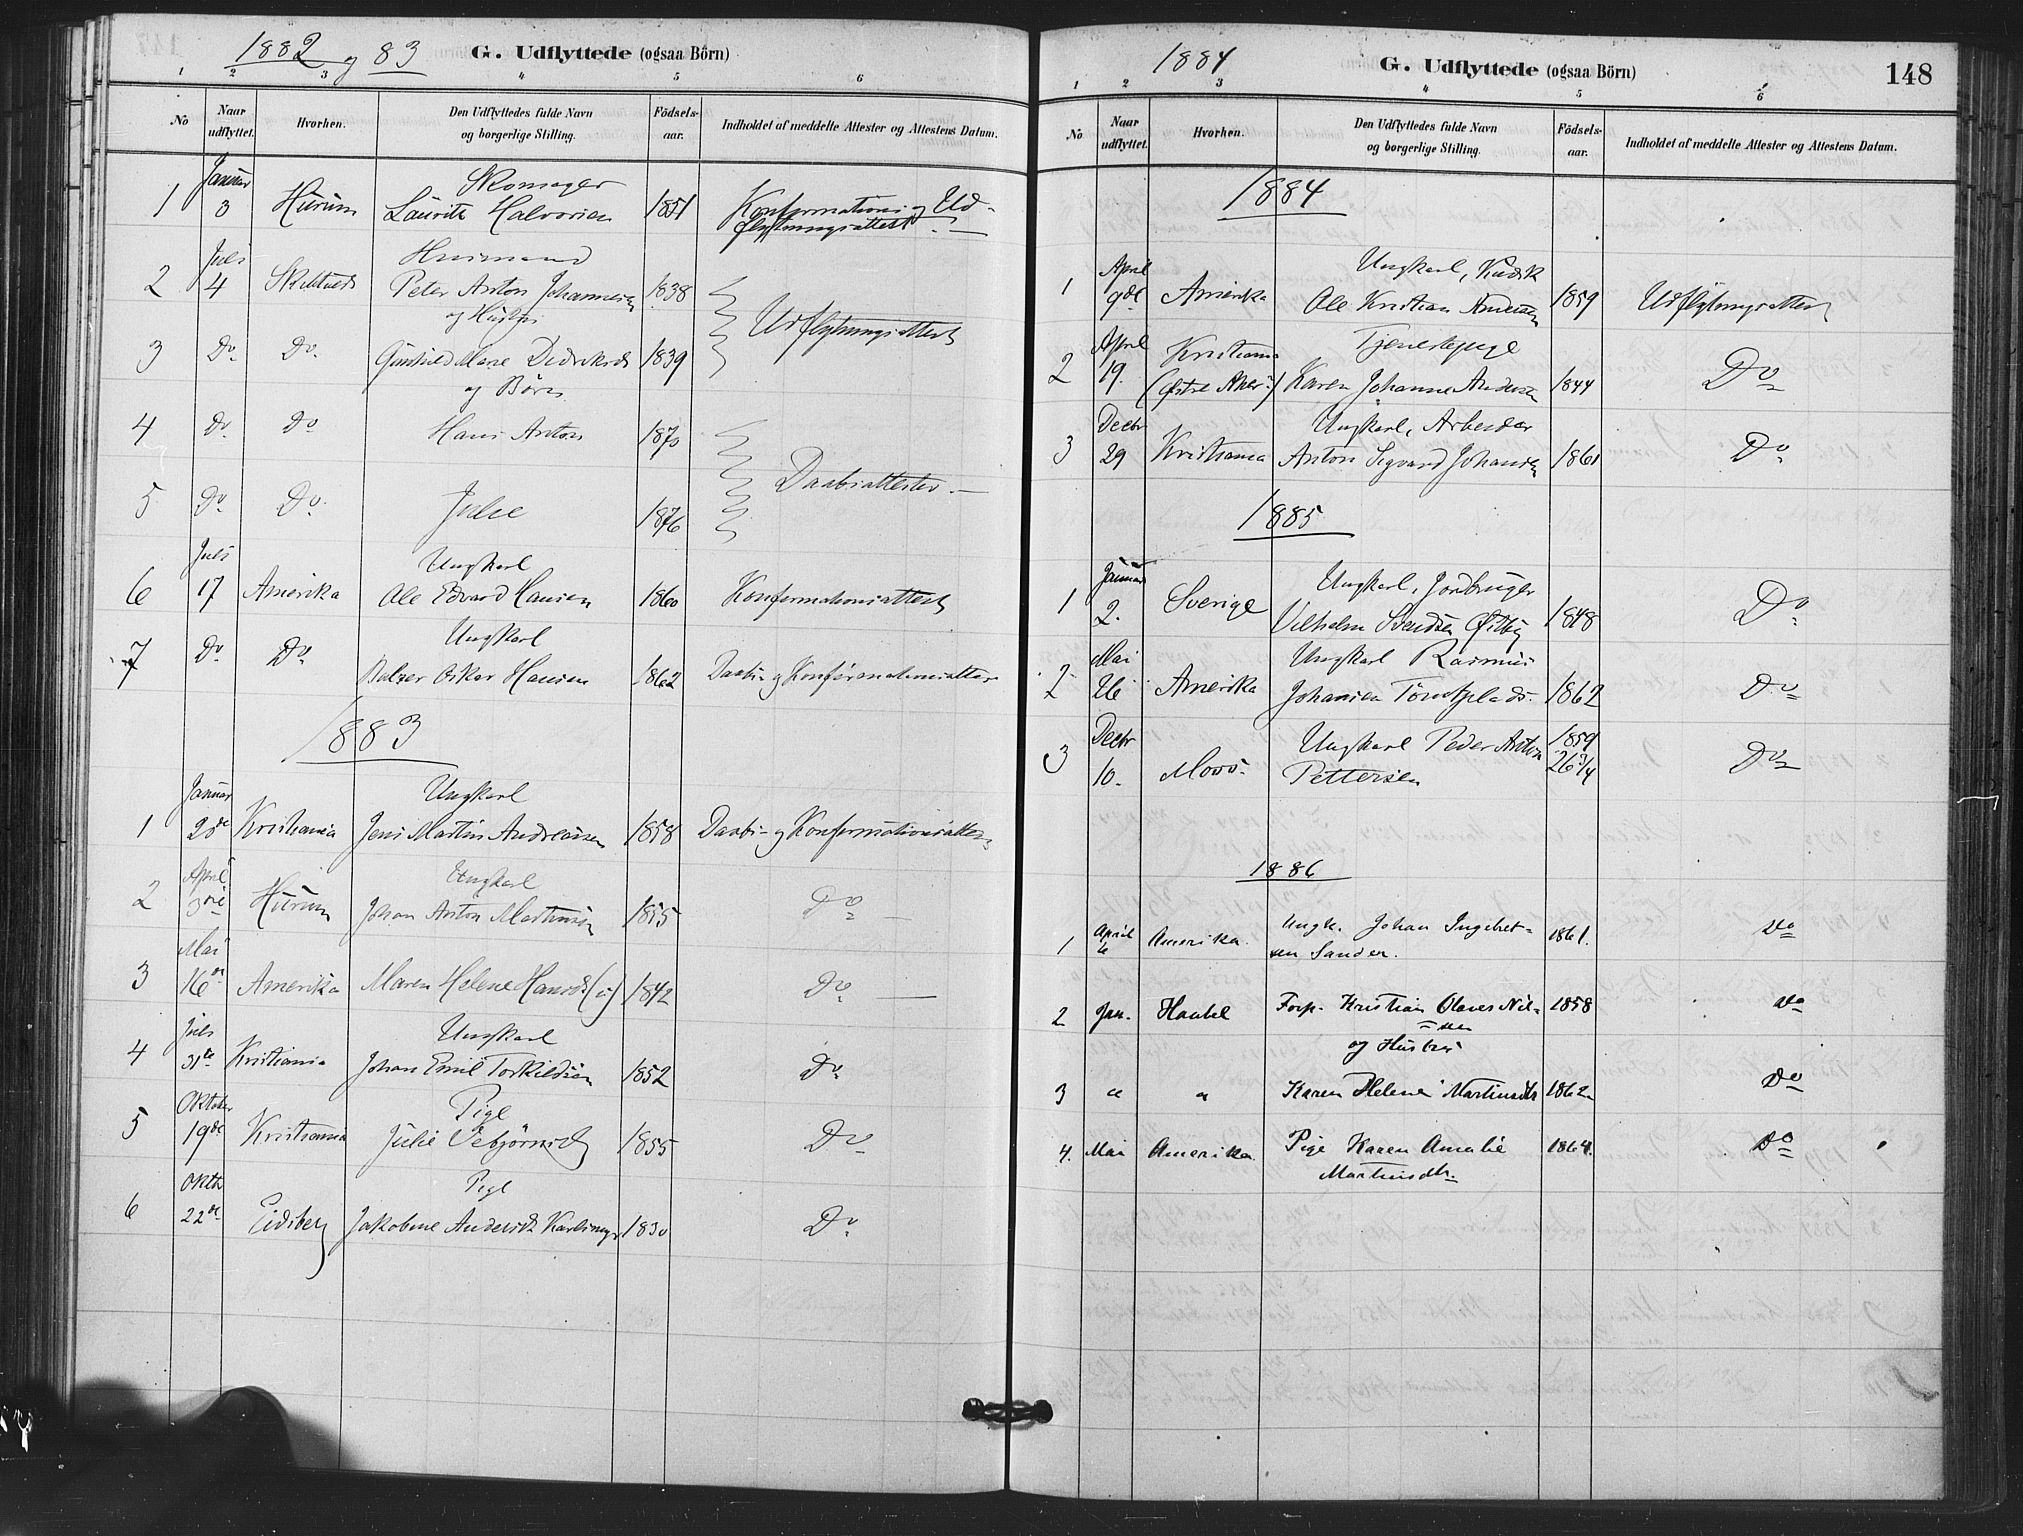 1882 og 83
G. Udflyttede (ogsaa Börn)
1 2 3 4 5 6
No
Naar udflyttet.
Hvorhen.
Den Udflyttedes fulde Navn og borgerlige Stilling.
Födsels-aar.
Indholdet af meddelte Attester og Attestens Datum.
Januar Skomager
1 3 Hurum Lauritz Halvorsen 1851 Konfirmations og Ud-
flytningsattest
Juli Husmand
2 4 Skibtvedt Peter Anton Johannesen 1838
og Hustru
Udflytningsattest
3 Do Do Gunhild Marie Didriksd 1839
og Börn
4 Do Do Hans Anton 1870
Daabsattester
5 Do Do Julie 1876
Juli Ungkarl
6 17 Amerika Ole Edvard Hansen 1860 Konfirmationsattest
Ungkarl
7 Do Do Oskar Hansen 1862 Daabs- og Konfirmationsattest
1883
Januar Ungkarl
1 Kristiania Jens Martin Andreassen 1858 Daabs- og Konfirmationsattest
April Ungkarl
2 3die Hurum Johan Anton Martinsen 1855 Do
Mai
3 16de Amerika Maren Helene Hansd (u) 1842 Do
Juli Ungkarl
4 31te Kristiania Johan Emil Torkildsen 1852 Do
Oktober Pige
5 19de Kristiania Julie 1855 Do
Oktbr Pige
6 22de Eidsberg Jakobine Andersdt 1830 Do
1884
G. Udflyttede (ogsaa Börn)
148
1 2 3 4 5 6
No
Naar udflyttet.
Hvorhen.
Den Udflyttedes fulde Navn og borgerlige Stilling.
Födsels-aar.
Indholdet af meddelte Attester og Attestens Datum.
1884
April Ungkarl, Kudsk
1 9de Amerika Ole Kristian Andersen 1859 Udflytningsattest
April Kristiania Tjenestepige
2 19. (Østre Aker) Karen Johanne Andersen 1844 Do
Decbr Ungkarl, Arbeider
3 29 Kristiania Anton Sigvard Johansen 1861 Do
1885
Januar Ungkarl, Jordbruger
1 2. Sverige Vilhelm Svendsen Østby 1848 Do
Mai Ungkarl Rasmus
2 26 Amerika Johansen 1862 Do
Decbr Ungkarl Peder Anton 1859
3 10. Moss Pettersen 26 3/4 Do
1886
1 April 6 Amerika. Ungk. Johan Ingebret- 1861. Do
sen Sander.
2 Jan. Haabel Forp. Kristian Olaves Nil- 1858 Do
sen
og Hustru
3 " " Karen Helene Martinsdtr 1862 Do
4. Mai Amerika. Pige Karen Amalie 1864. Do
Martinsdtr.